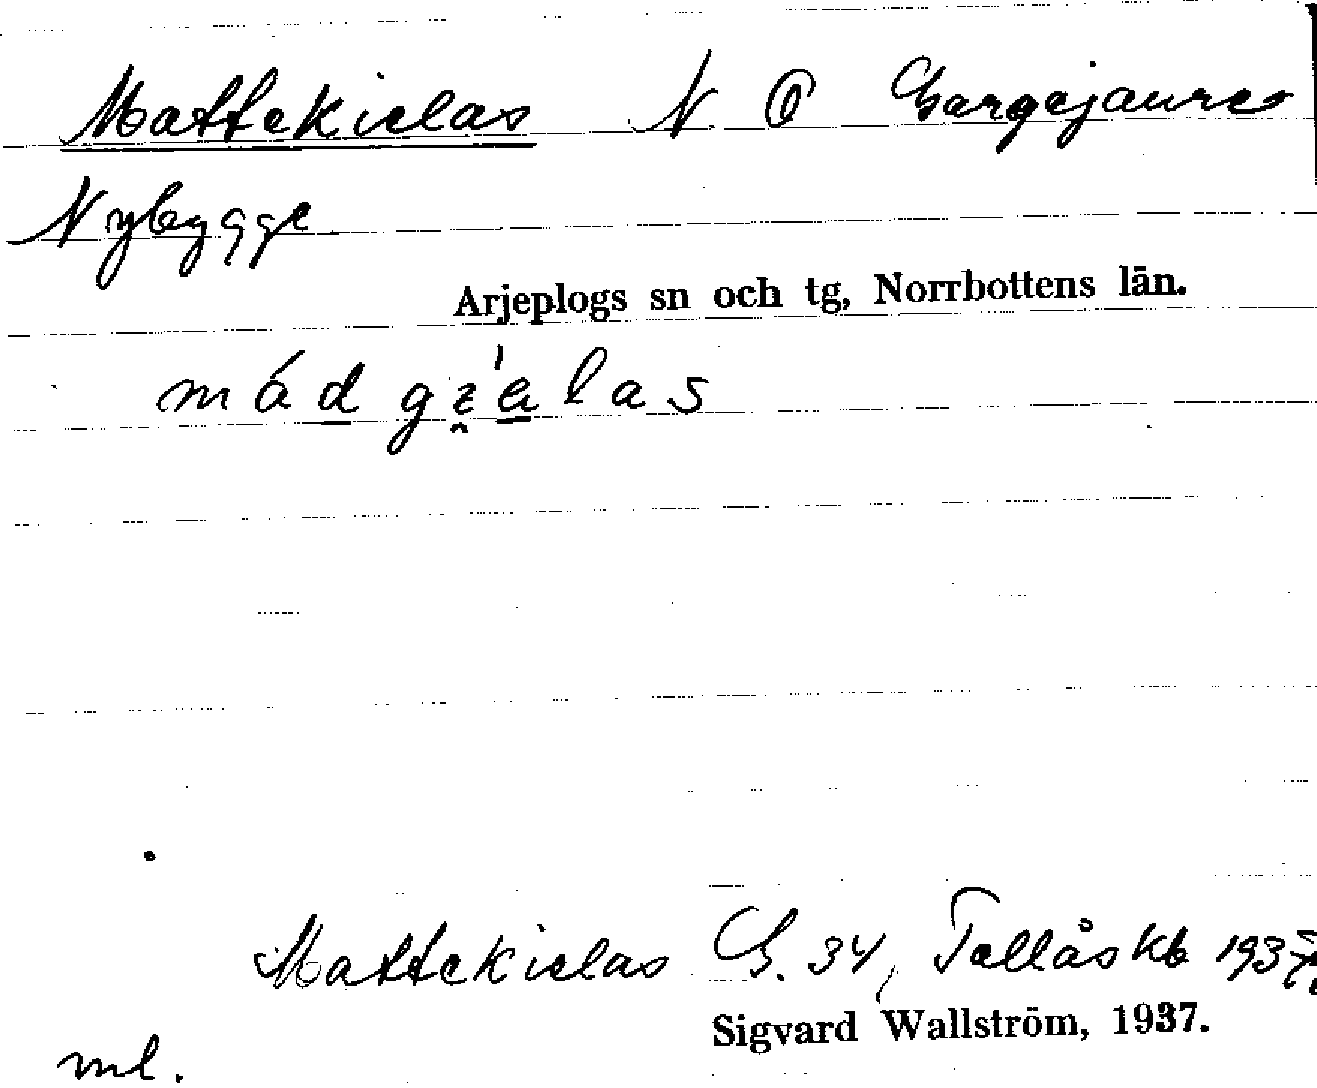 Mattekielas N O Gargejaures
Nybygge
Arjeplogs sn och tg, Norrbottens län.
mádgiẹlas
Mattekielas G. 34, Tallås kb 1937,
Sigvard Wallström, 1937.
ml.